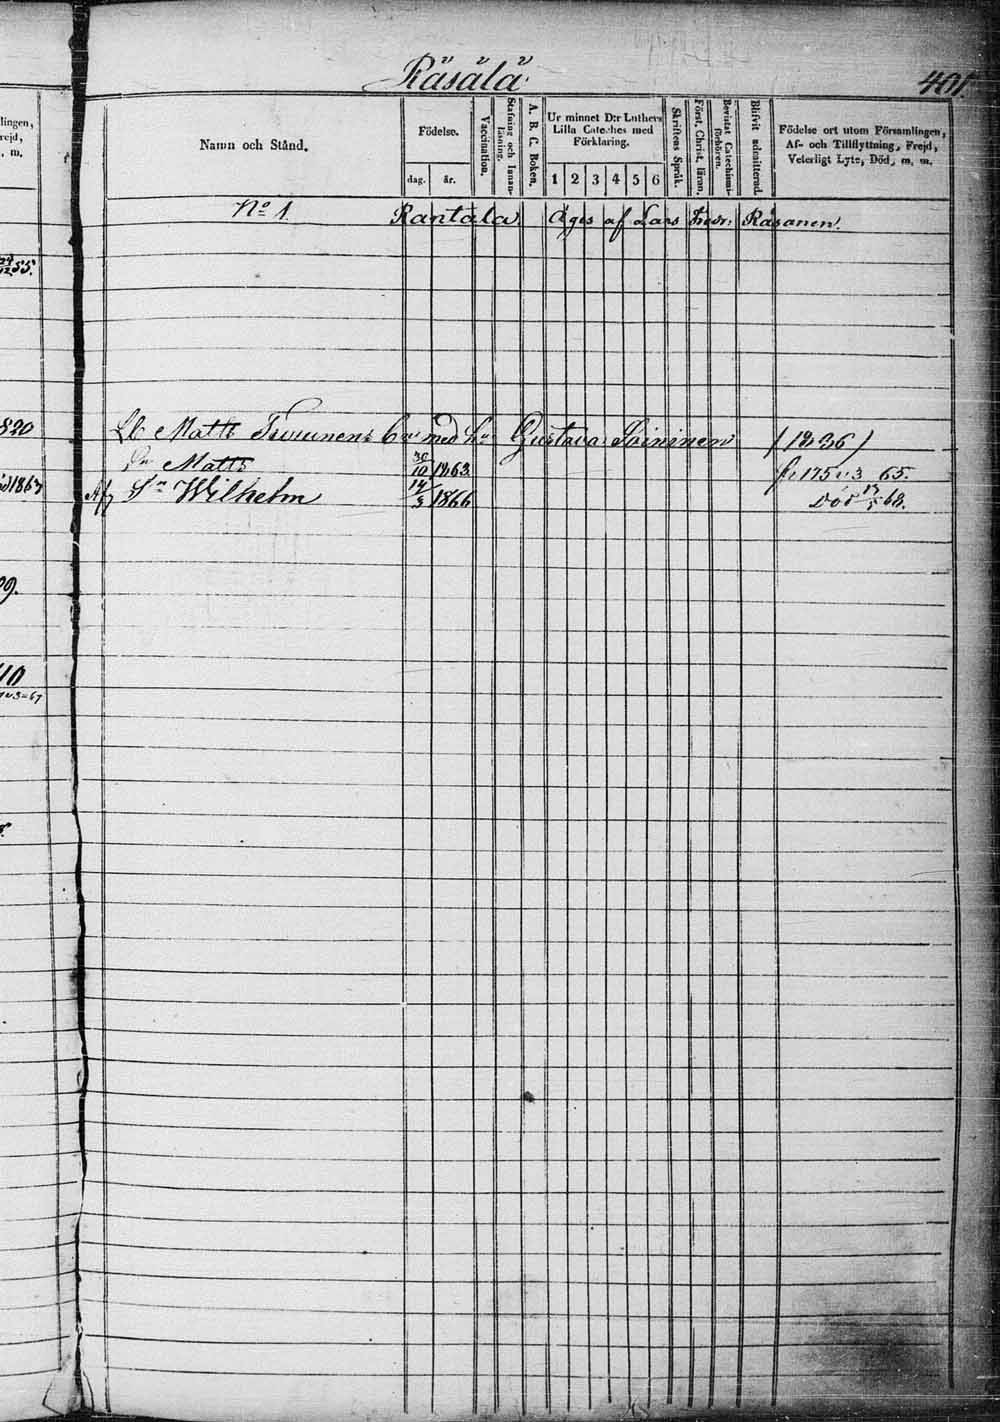 Räsälä
401
lingen,
rejd,
. m.
Namn och Stånd.
Födelse.
dag. år.
Vaccination.
Stafning och Innan-läsning.
A. B. C. Boken.
Ur minnet D:r Luthers
Lilla Cateches med
Förklaring.
1 2 3 4 5 6
Skriftens Språk.
Först. Christ. läran.
Bevistat Catechismi-förhören.
Blifvit admitterad.
Födelse ort utom Församlingen,
Af- och Tillflyttning, Frejd,
Veterligt Lyte, Död, m. m.
No 1. Rantala Äges af Lars Fredr: Räsänen.
55.
820 Matts med Gustava Toininen (1836)
Sn Matts 30/10 1863 65.
1867 Sn Wilhelm 14/3 1866 Död 13/5 68.
09.
110